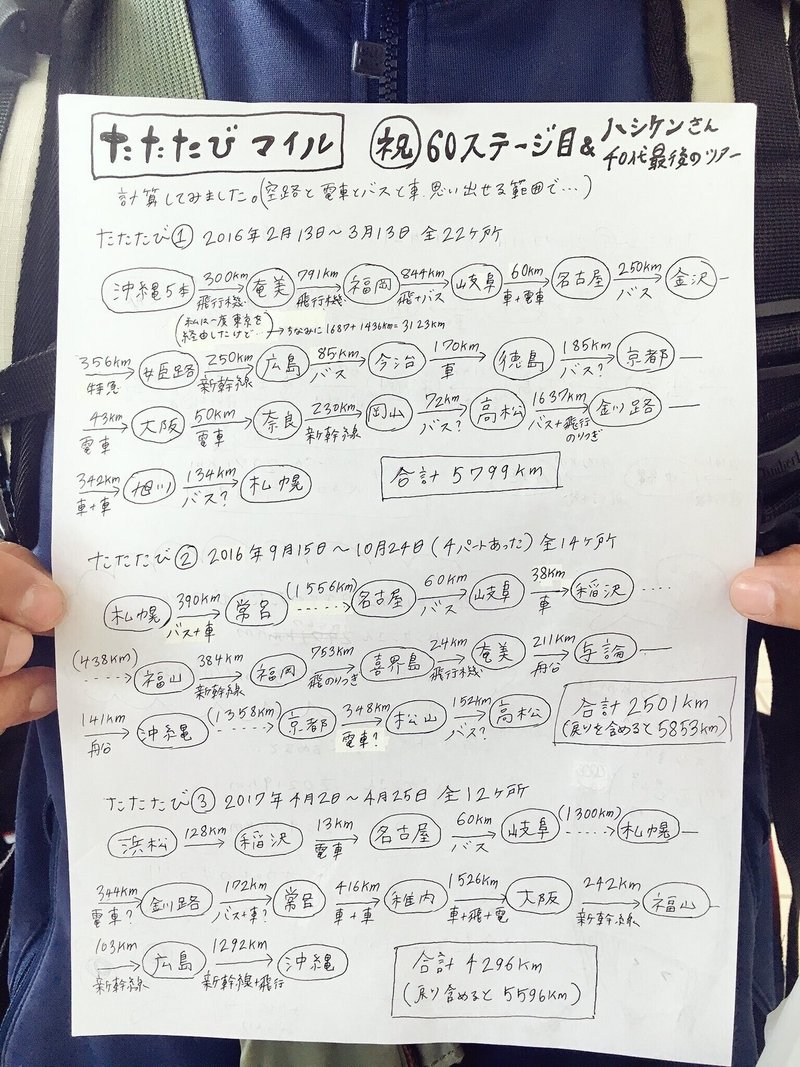 たたたび マイル ㊗ 60ステージ目& ハシケンさん
40代最後のツアー
計算してみました。(空路と電車とバスと車 思い出せる範囲で…)
たたたび① 2016年2月13日~3月13日 全22ヶ所
沖縄5本 300km 飛行機 奄美 791km 飛行機 福岡 844km 飛+バス 岐阜 60km 車+電車 名古屋 250km バス 金沢
(私は一度東京を
経由したけど… → ちなみに1687+1436km=3123km
356km 特急 姫路 250km 新幹線 広島 85km バス 今治 170km 車 徳島 185km バス? 京都
43km 電車 大阪 50km 電車 奈良 230km 新幹線 岡山 72km バス? 高松 1637km バス+飛行のりつぎ 釧路
342km 車+車 旭川 134km バス? 札幌 合計 5799km
たたたび② 2016年9月15日~10月24日(4パートあった) 全14ヶ所
札幌 390km バス+車 常呂 (1556km) 名古屋 60km バス 岐阜 38km 車 稲沢 ....
(438km) 福山 384km 新幹線 福岡 753km 飛のりつぎ 喜界島 24km 飛行機 奄美 211km 船 与論
141km 船 沖縄 (1358km) 京都 348km 電車? 松山 152km バス? 高松 合計 2501km
(戻りを含めると 5853km)
たたたび③ 2017年4月2日~4月25日 全12ヶ所
浜松 128km 稲沢 13km 電車 名古屋 60km バス 岐阜 (1300km) 札幌
344km 電車? 釧路 172km バス+車? 常呂 416km 車+車 稚内 1526km 車+飛+電 大阪 242km 新幹線 福山
103km 新幹線 広島 1292km 新幹線+飛行 沖縄 合計 4296km
(戻り含めると 5596km)